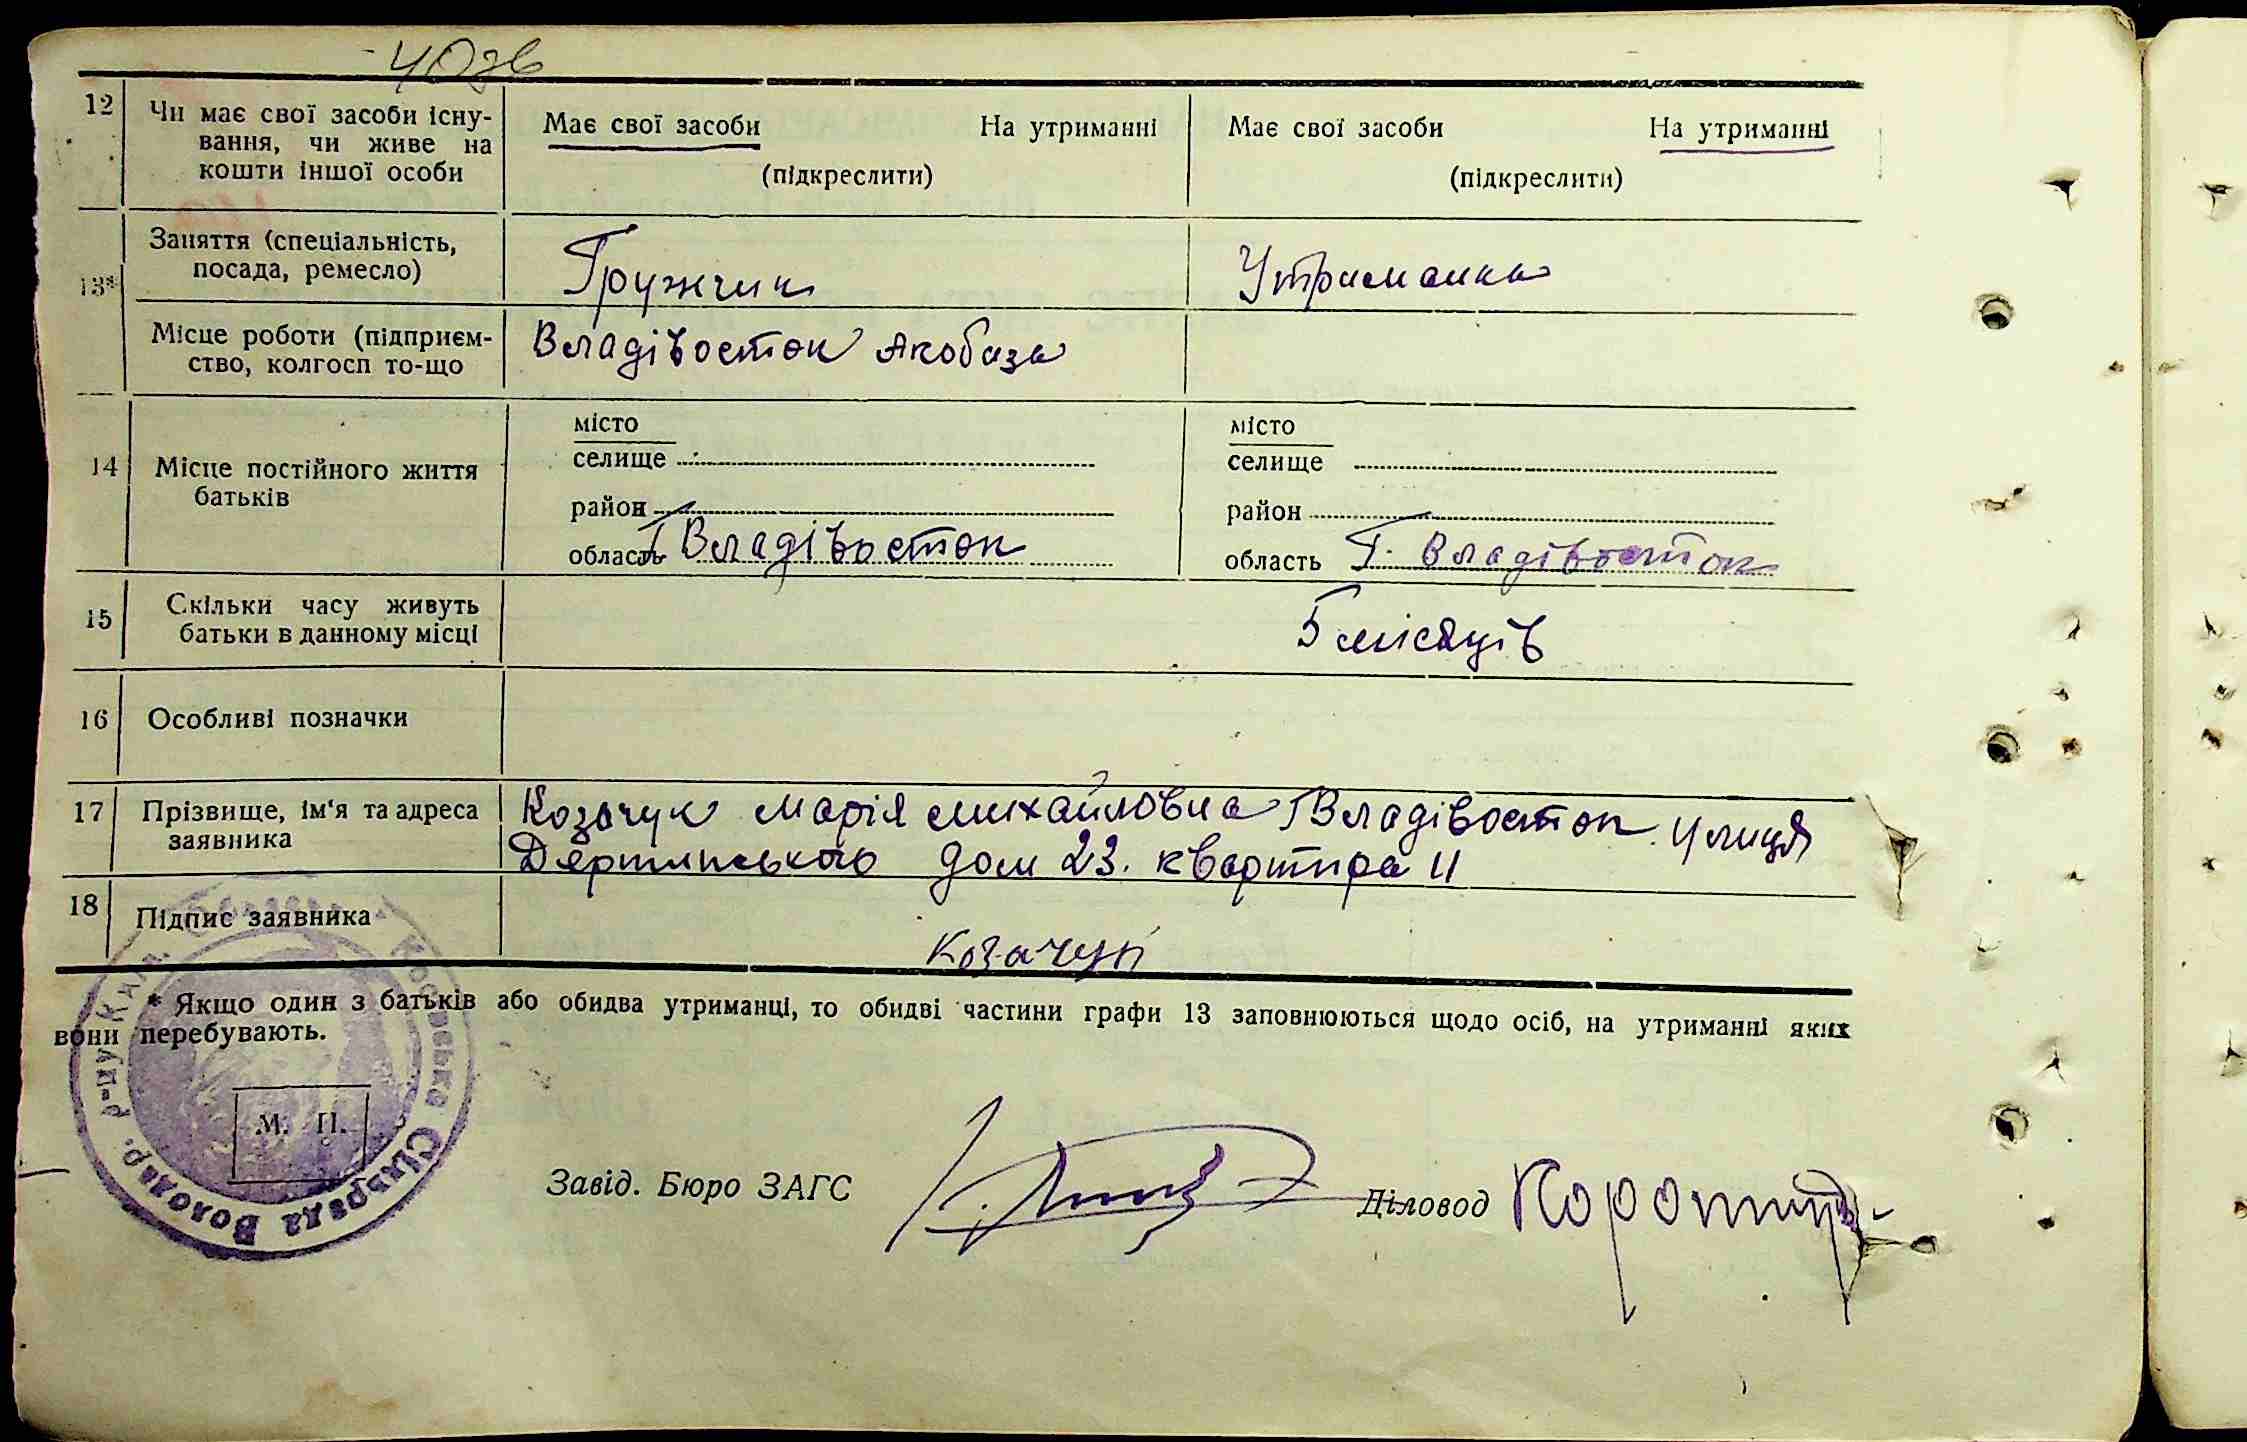 40зв
12 Чи має свої засоби існу- Має свої засоби На утриманні Має свої засоби На утриманні
вання, чи живе на
кошти іншої особи (підкреслити) (підкреслити)
13* Заняття (спеціальність, Гружчик Утриманка
посада, ремесло)
Місце роботи (підприєм- Владівосток
ство, колгосп то-що
14 Місце постійного життя місто місто
батьків селище селище
район район
область Г Владівосток область Г. Владівосток
15 Скільки часу живуть 5 місяців
батьки в данному місці
16 Особливі позначки
17 Прізвище, ім'я та адреса Козачук Марія Михайловна Г Владівосток улиця
заявника дом 23. квартира 11
18 Підпис заявника Козачук
* Якщо один з батьків або обидва утриманці, то обидві частини графи 13 заповнюються щодо осіб, на утриманні яких
вони перебувають.
М. П.
Сільрада Володар. р-ну
Завід. Бюро ЗАГС Діловод